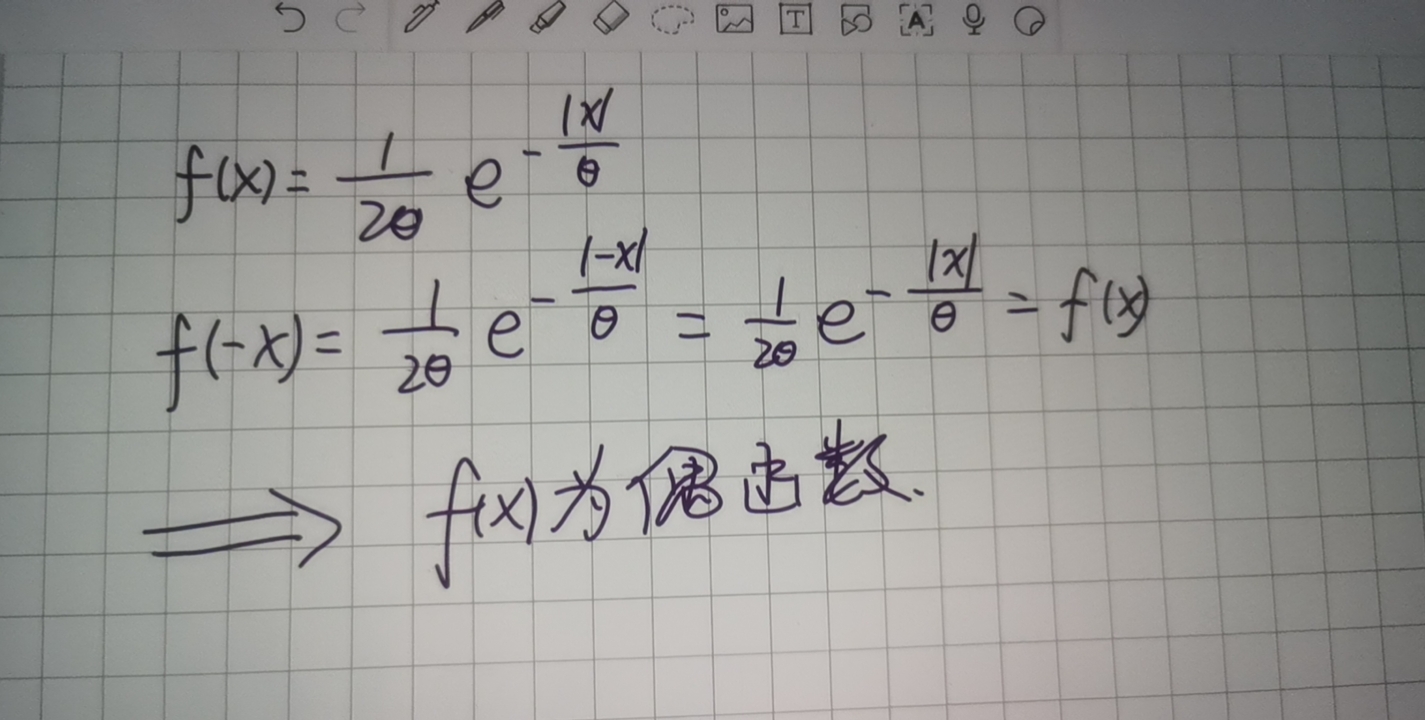 f(x) = 1/2θ e^(-|x|/θ)
f(-x) = 1/2θ e^(-|-x|/θ) = 1/2θ e^(-|x|/θ) = f(x)
⟹ f(x)为偶函数.